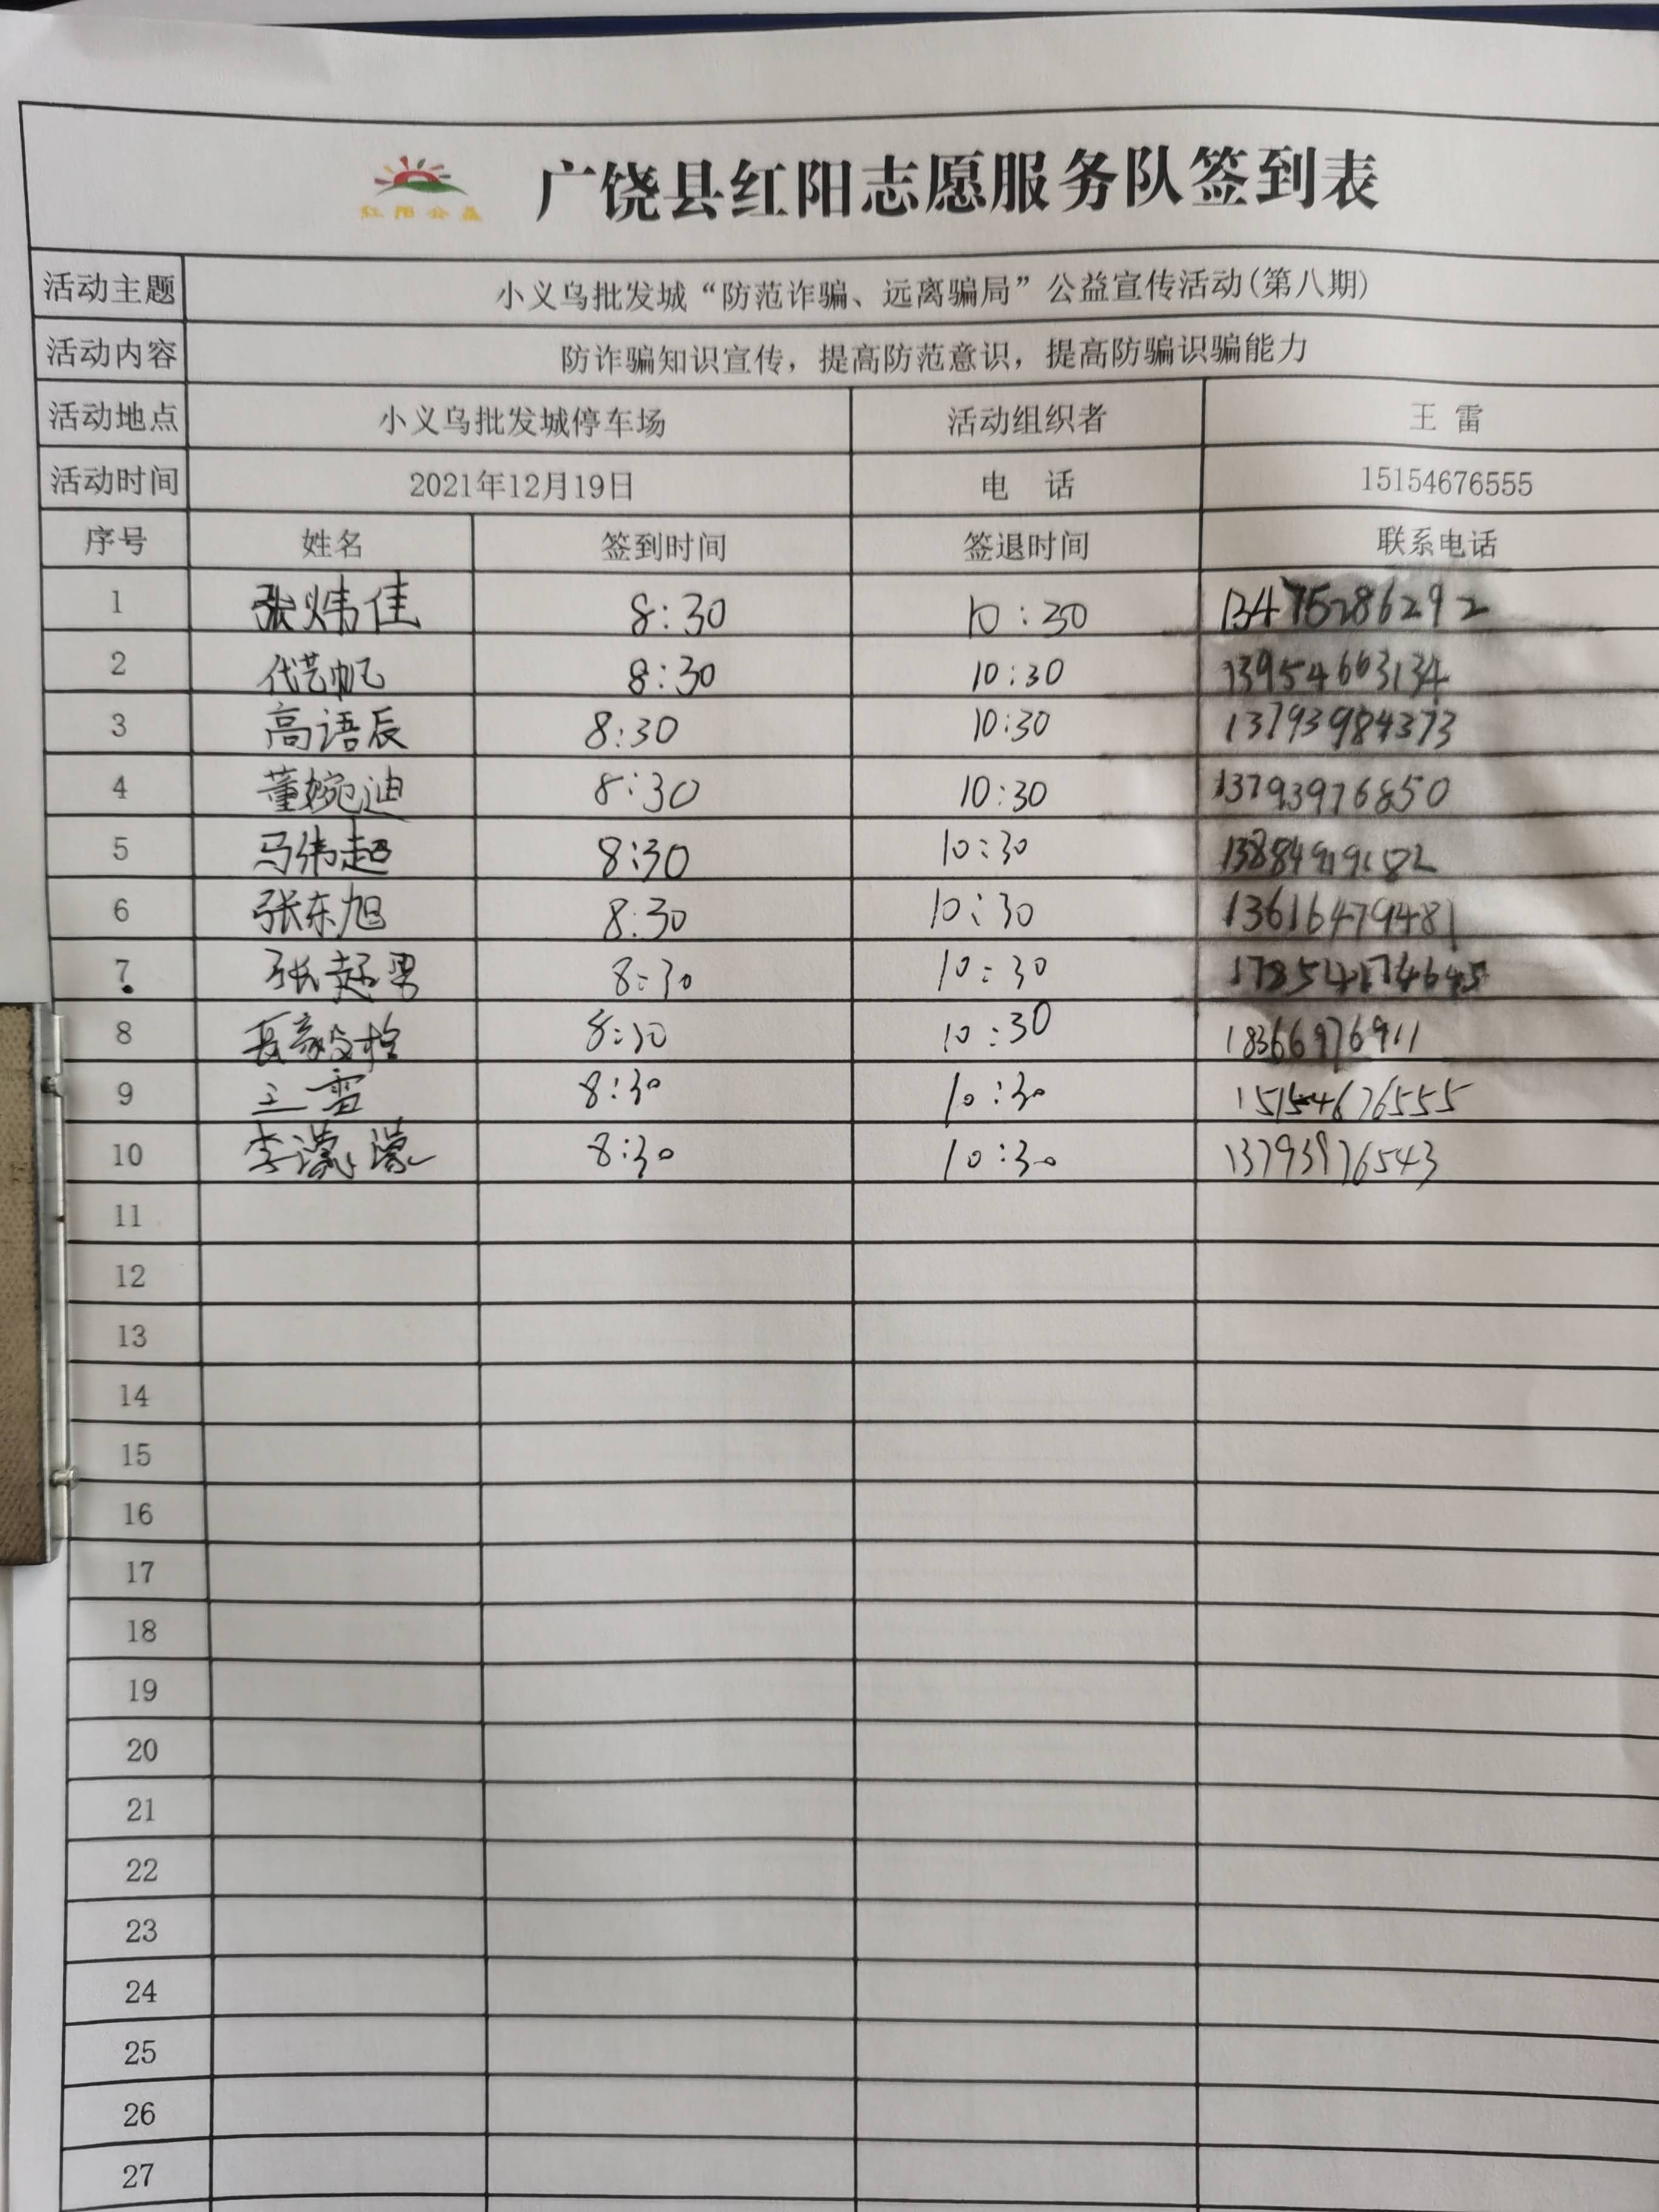 红阳公益
广饶县红阳志愿服务队签到表
活动主题 小义乌批发城“防范诈骗、远离骗局”公益宣传活动(第八期)
活动内容 防诈骗知识宣传，提高防范意识，提高防骗识骗能力
活动地点 小义乌批发城停车场 活动组织者 王 雷
活动时间 2021年12月19日 电 话 15154676555
序号 姓名 签到时间 签退时间 联系电话
1 张炜佳 8:30 10:30 13475286292
2 代艺帆 8:30 10:30 13954663134
3 高语辰 8:30 10:30 13793984373
4 董婉迪 8:30 10:30 13793976850
5 马伟超 8:30 10:30
6 张东旭 8:30 10:30 13616479481
7 张 8:30 10:30
8 8:30 10:30 18366976911
9 王雷 8:30 10:30 15154676555
10 李濛濛 8:30 10:30 13793976543
11
12
13
14
15
16
17
18
19
20
21
22
23
24
25
26
27